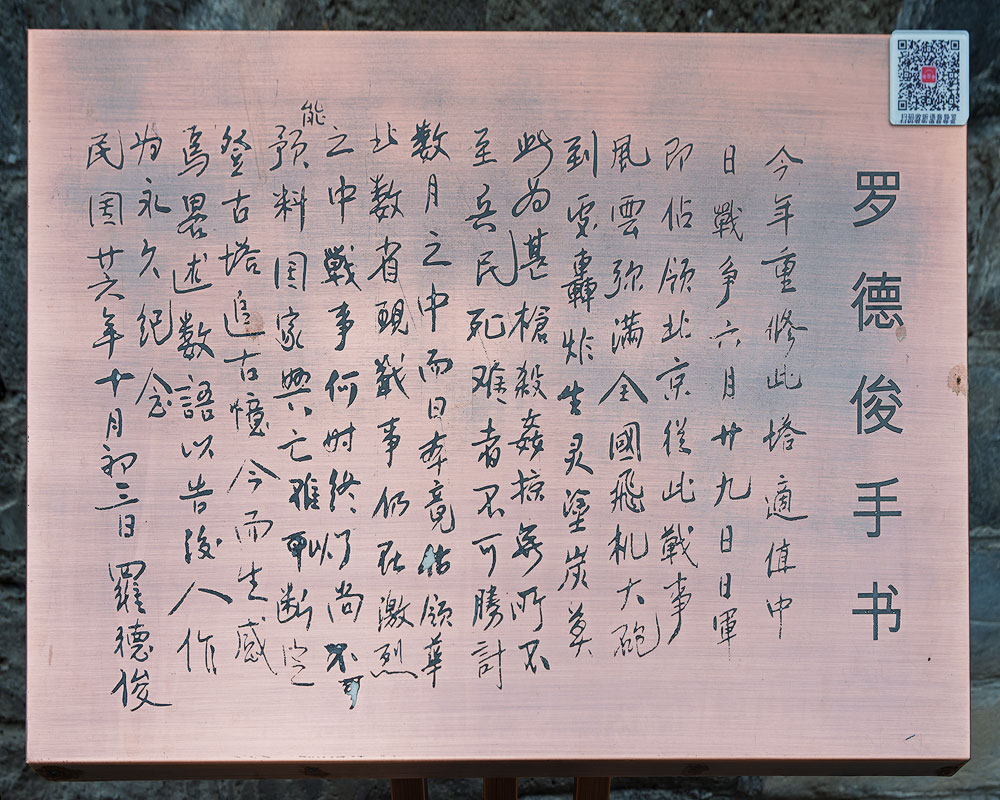 罗德俊手书
今年重修此塔適值中
日戰争六月廿九日日軍
即佔领北京從此戰事
風雲弥满全國飛机大砲
到处轟炸生灵塗炭莫
此为甚槍殺姦掠無所不
至兵民死难者不可勝計
数月之中而日本竟佔领華
北数省現戰事仍在激烈
之中戰事何时终了尚不可
能
预料国家興亡难断定
登古塔追古憶今而生感
焉畧述数語以告後人作
为永久纪念
民国廿六年十月初三日 羅德俊